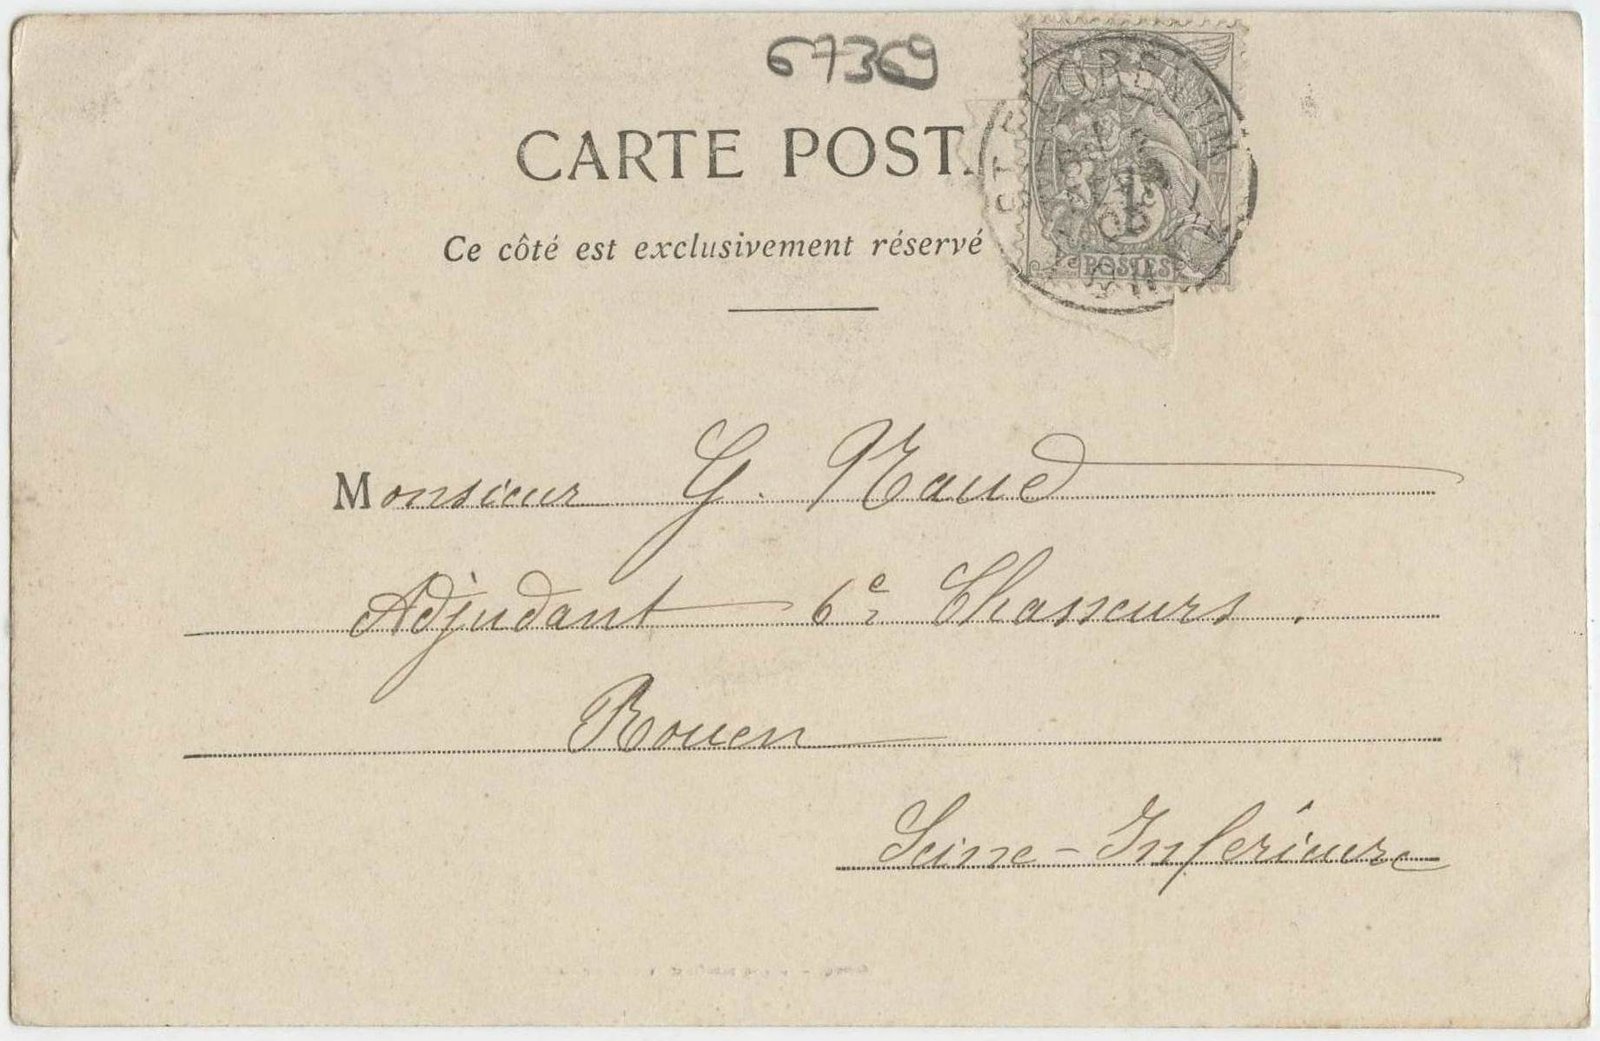 67369
CARTE POST
Ce côté est exclusivement réservé
ST FLORENTIN
1c
POSTES
Monsieur G. Naud
Adjudant 6e Chasseurs.
Rouen
Seine-Inférieure